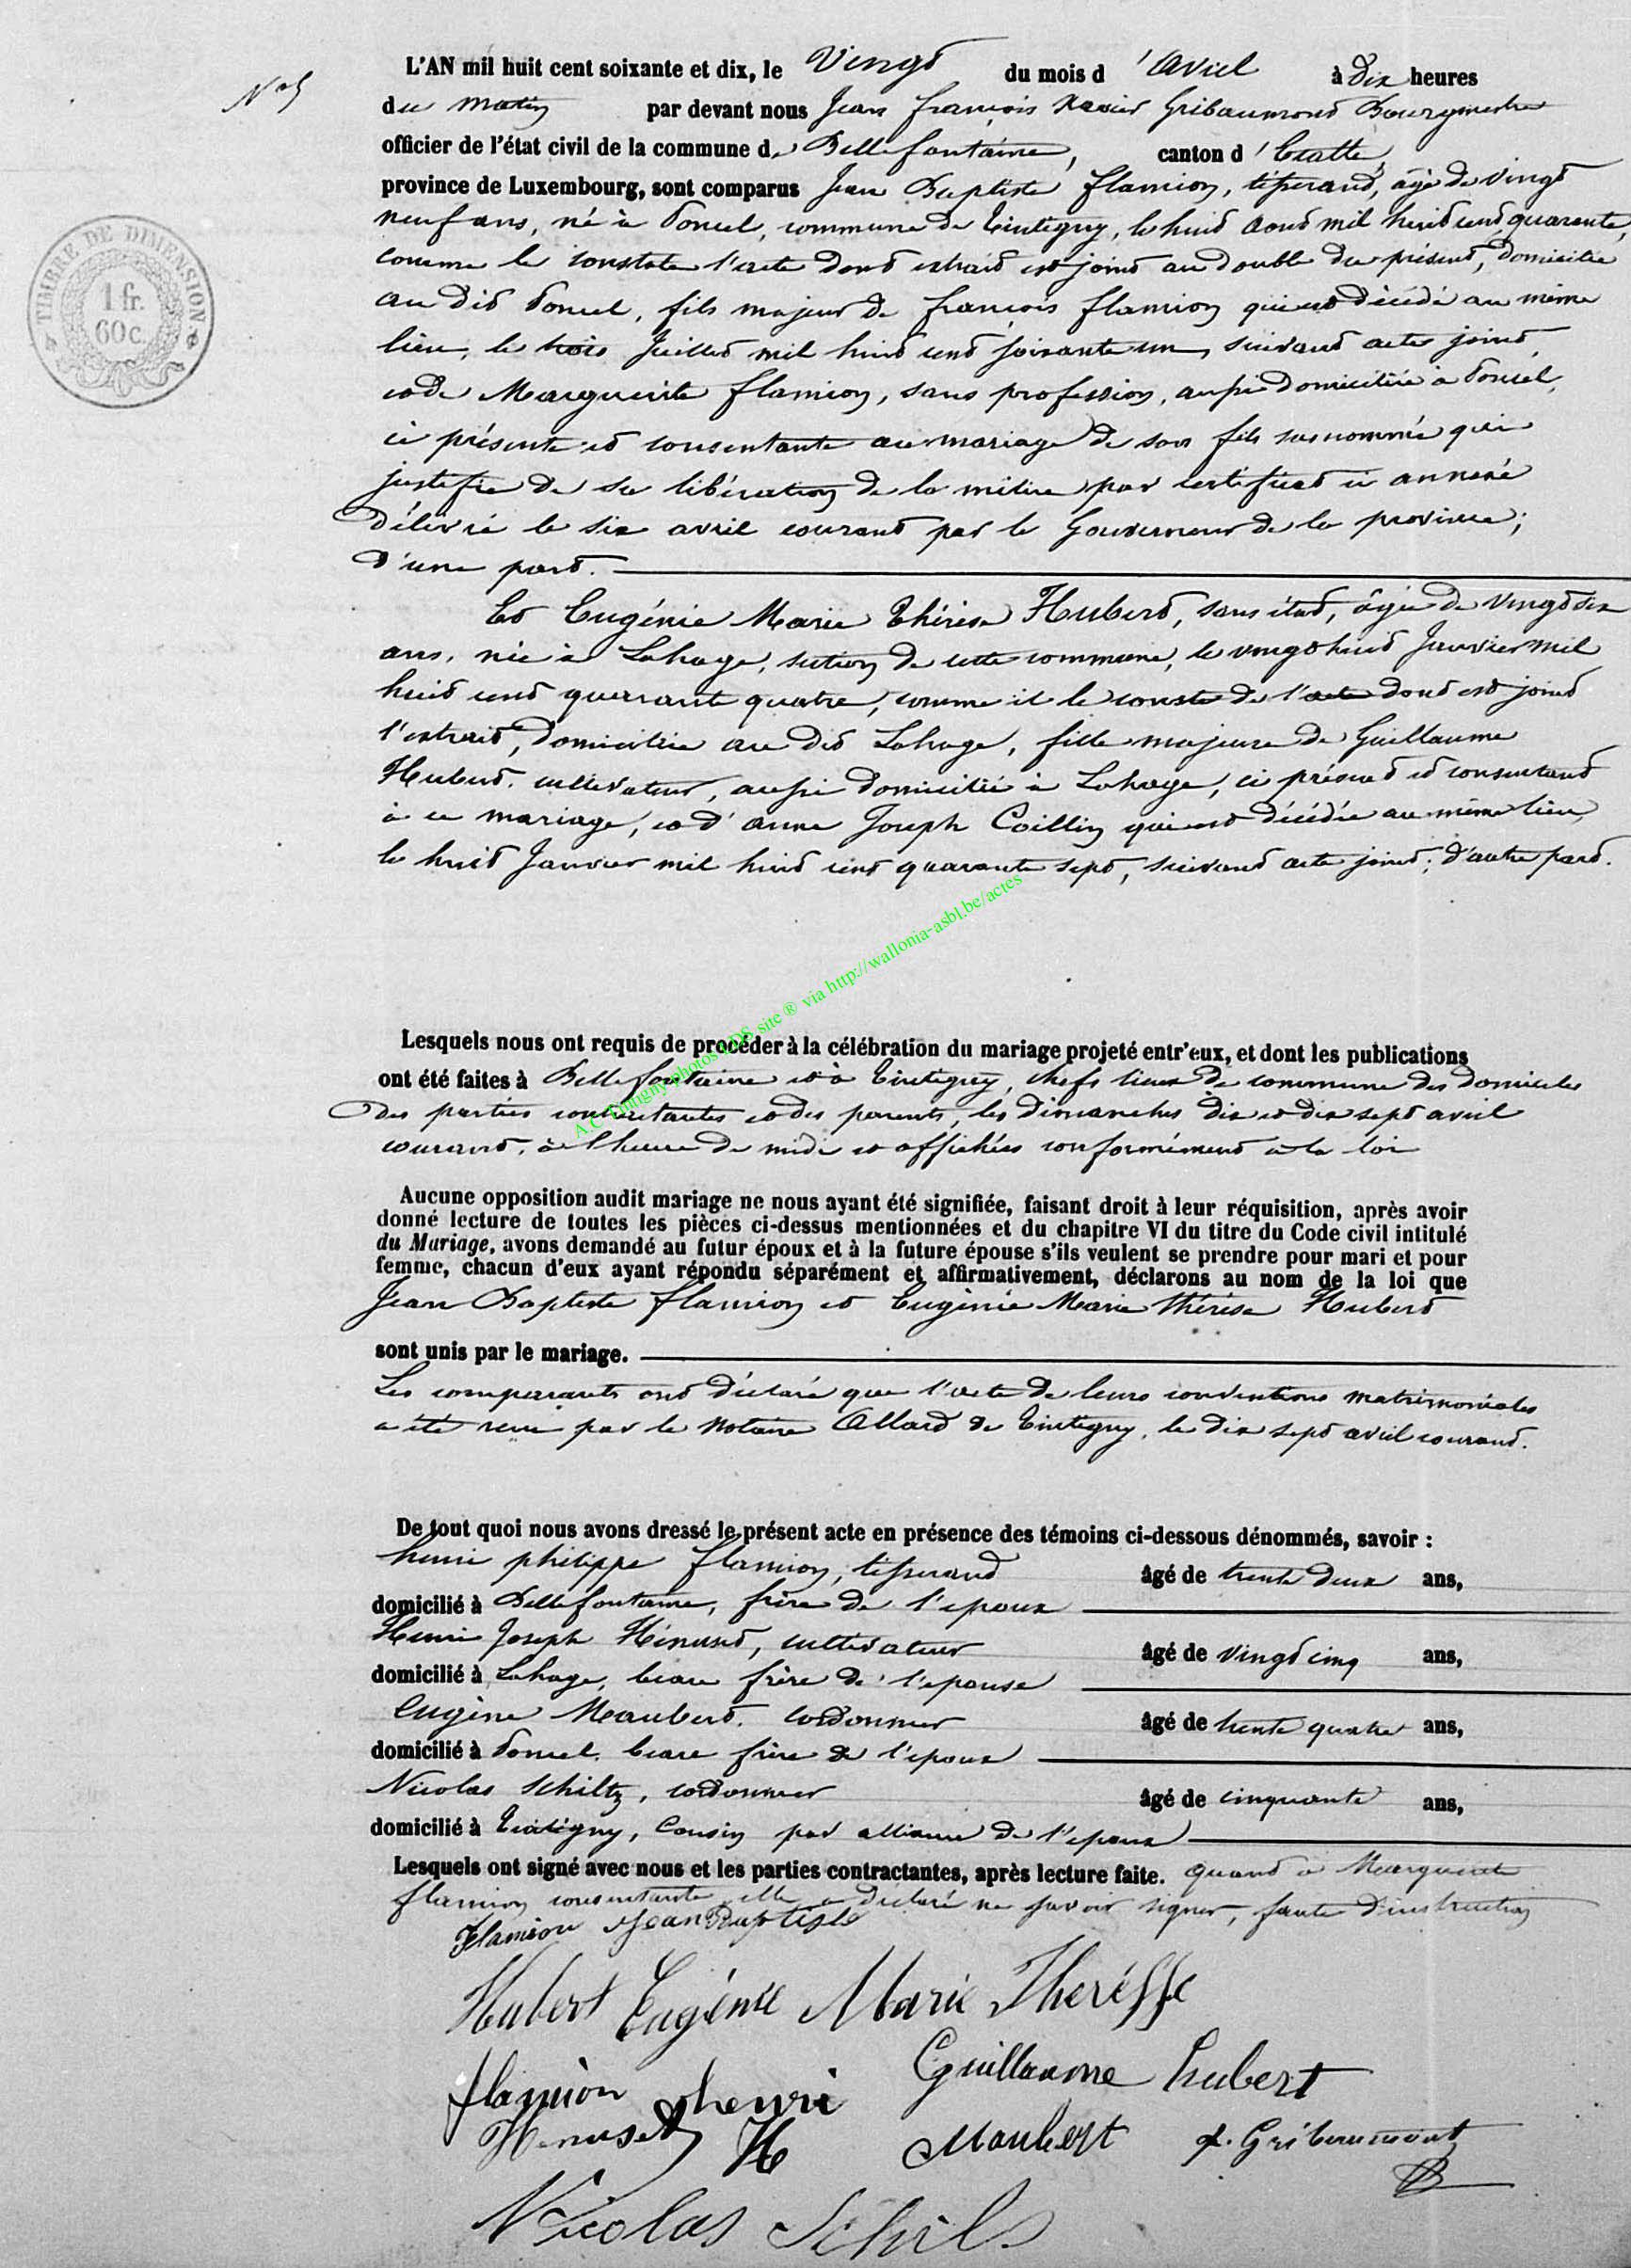 N° 5
L'AN mil huit cent soixante et dix, le Vingt du mois d'avril à dix heures
du matin par devant nous Jean François Xavier Gribaumont Bourgmestre
officier de l'état civil de la commune de Bellefontaine, canton d'Etalle,
province de Luxembourg, sont comparus Jean Baptiste Flamion, tisserand, âgé de vingt
neuf ans, né à Poncel, commune de Tintigny, le huit août mil huit cent quarante,
comme le constate l'acte dont extrait est joint au double du présent, domicilié
au dit Poncel, fils majeur de François Flamion qui est décédé au même
lieu, le trois Juillet mil huit cent soixante un, suivant acte joint,
et de Marguerite Flamion, sans profession, aussi domiciliée à Poncel,
ci présente et consentante au mariage de son fils susnommé qui
justifie de sa libération de la milice par certificat ci annexé
délivré le six avril courant par le Gouverneur de la province;
d'une part.
Et Eugénie Marie Thérèse Hubert, sans état, âgée de vingt six
ans, née à Lahage, section de cette commune, le vingt huit Janvier mil
huit cent quarante quatre, comme il le conste de l'acte dont est joint
l'extrait, domiciliée au dit Lahage, fille majeure de Guillaume
Hubert, cultivateur, aussi domicilié à Lahage, ci présent et consentant
à ce mariage, et d'anne Joseph Coillin qui est décédée au même lieu,
le huit Janvier mil huit cent quarante sept, suivant acte joint; d'autre part.
A.C. Tintigny photos LDS site ® via http://wallonia-asbl.be/actes
Lesquels nous ont requis de procéder à la célébration du mariage projeté entr'eux, et dont les publications
ont été faites à Bellefontaine et à Tintigny, chefs lieux de commune des domiciles
des parties contractantes et des parents, les dimanches dix et dix sept avril
courant, à l'heure de midi et affichées conformément à la loi
Aucune opposition audit mariage ne nous ayant été signifiée, faisant droit à leur réquisition, après avoir
donné lecture de toutes les pièces ci-dessus mentionnées et du chapitre VI du titre du Code civil intitulé
du Mariage, avons demandé au futur époux et à la future épouse s'ils veulent se prendre pour mari et pour
femme, chacun d'eux ayant répondu séparément et affirmativement, déclarons au nom de la loi que
Jean Baptiste Flamion et Eugénie Marie Thérèse Hubert
sont unis par le mariage.
Les comparants ont déclaré que l'acte de leurs conventions matrimoniales
a été reçu par le Notaire Allard de Tintigny, le dix sept avril courant.
De tout quoi nous avons dressé le présent acte en présence des témoins ci-dessous dénommés, savoir :
henri philippe Flamion, tisserand âgé de trente deux ans,
domicilié à Bellefontaine, frère de l'epoux
Henri Joseph Hénuset, cultivateur âgé de vingt cinq ans,
domicilié à Lahage, beau frère de l'epouse
Eugène Maubert, cordonnier âgé de trente quatre ans,
domicilié à Poncel, beau frère de l'epoux
Nicolas Schiltz, cordonnier âgé de cinquante ans,
domicilié à Tintigny, Cousin par alliance de l'epoux
Lesquels ont signé avec nous et les parties contractantes, après lecture faite. quant à Marguerite
flamion consentante, elle a déclaré ne savoir signer, faute d'instruction
Flamion Jean Baptiste
Hubert Eugénie Marie Théresse
Guillaume hubert
flamion henri
Henuset H
Maubert
X. Gribaumont
Nicolas Schils
TIMBRE DE DIMENSION
1 fr.
60 c.